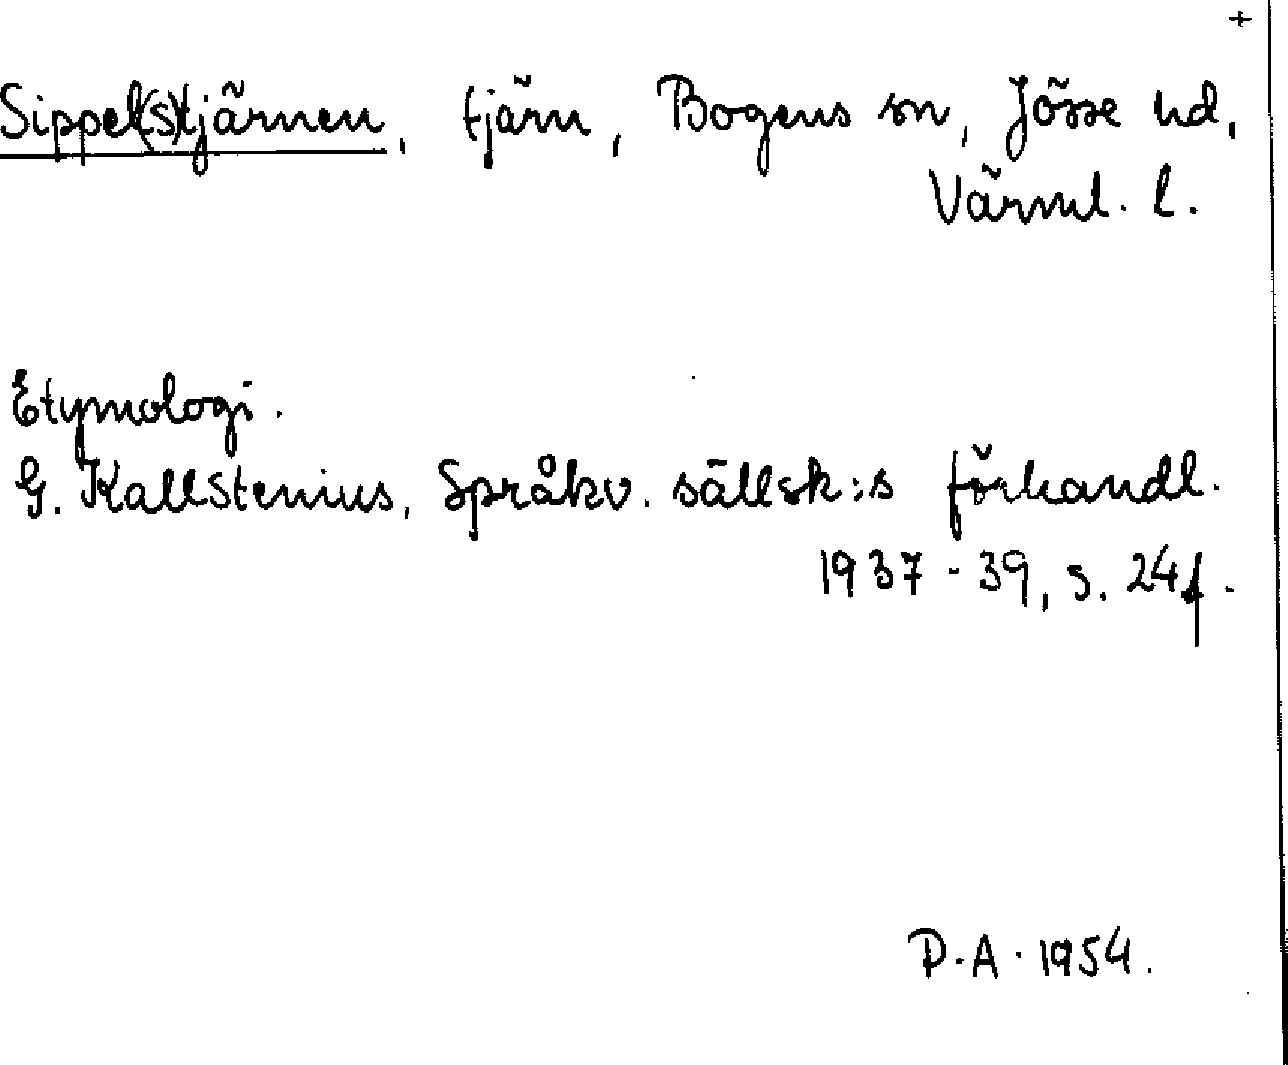 +
Sippel(s)tjärnen, tjärn, Bogens sn, Jösse hd,
Värml. l.
Etymologi.
G. Kallstenius, Språkv. sällsk:s förhandl.
1937-39, s. 24f.
P.A. 1954.